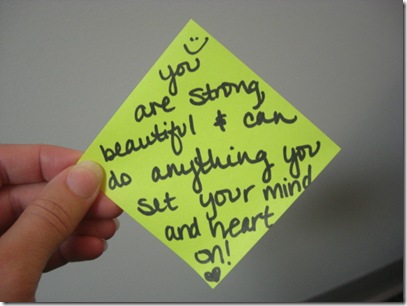 you
are strong,
beautiful & can
do anything you
set your mind
and heart
on!